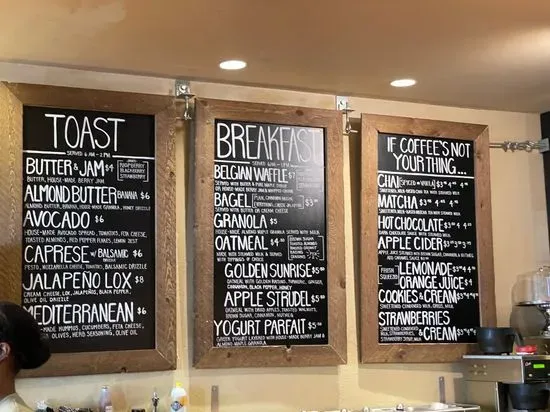 TOAST
SERVED 6 AM - 2 PM
RASPBERRY
BLACKBERRY
STRAWBERRY
BUTTER & JAM $4
BUTTER, HOUSE-MADE BERRY JAM
ALMOND BUTTER BANANA $6
ALMOND BUTTER, BANANA, HOUSE-MADE GRANOLA, HONEY DRIZZLE
AVOCADO $6
HOUSE-MADE AVOCADO SPREAD, TOMATOES, FETA CHEESE,
TOASTED ALMONDS, RED PEPPER FLAKES, LEMON ZEST
CAPRESE W/ BALSAMIC DRIZZLE $6
PESTO, MOZZARELLA CHEESE, TOMATO, BALSAMIC DRIZZLE
JALAPEÑO LOX $8
CREAM CHEESE, LOX, JALAPEÑOS, BLACK PEPPER,
OLIVE OIL DRIZZLE
MEDITERRANEAN $6
HOUSE-MADE HUMMUS, CUCUMBERS, FETA CHEESE,
OLIVES, HERB SEASONING, OLIVE OIL
BREAKFAST
SERVED 6AM - 2PM
BELGIAN WAFFLE $7
SERVED WITH BUTTER & PURE MAPLE SYRUP
OR HOUSE-MADE BERRY JAM & WHIPPED CREAM
BAGEL PLAIN, CINNAMON RAISIN, EVERYTHING, CHEESE JALAPEÑO $3
SERVED WITH BUTTER OR CREAM CHEESE
GRANOLA $5
HOUSE-MADE ALMOND MAPLE GRANOLA SERVED WITH MILK
OATMEAL $4
MADE WITH STEAMED MILK & SERVED W/
TOPPINGS OF CHOICE
BROWN SUGAR
RAISINS
TOASTED ALMONDS
GOLDEN SUNRISE $5
OATMEAL WITH GOLDEN RAISINS, TURMERIC, GINGER,
CINNAMON, BLACK PEPPER, HONEY
APPLE STRUDEL $5
OATMEAL WITH DRIED APPLES, TOASTED WALNUTS,
BROWN SUGAR, CINNAMON, NUTMEG
YOGURT PARFAIT $5
GREEK YOGURT LAYERED WITH HOUSE-MADE BERRY JAM &
ALMOND MAPLE GRANOLA
IF COFFEE'S NOT
YOUR THING...
CHAI SPICED OR VANILLA $3
MATCHA $3
HOT CHOCOLATE $3
DARK CHOCOLATE SAUCE WITH STEAMED MILK
APPLE CIDER $3
APPLE JUICE STEAMED WITH BROWN SUGAR, CINNAMON & NUTMEG
ADD CARAMEL SAUCE
FRESH SQUEEZED
LEMONADE $3
ORANGE JUICE $4
COOKIES & CREAM $3
SWEETENED CONDENSED MILK, OREOS, MILK
STRAWBERRIES & CREAM $3
SWEETENED CONDENSED
MILK, STRAWBERRIES,